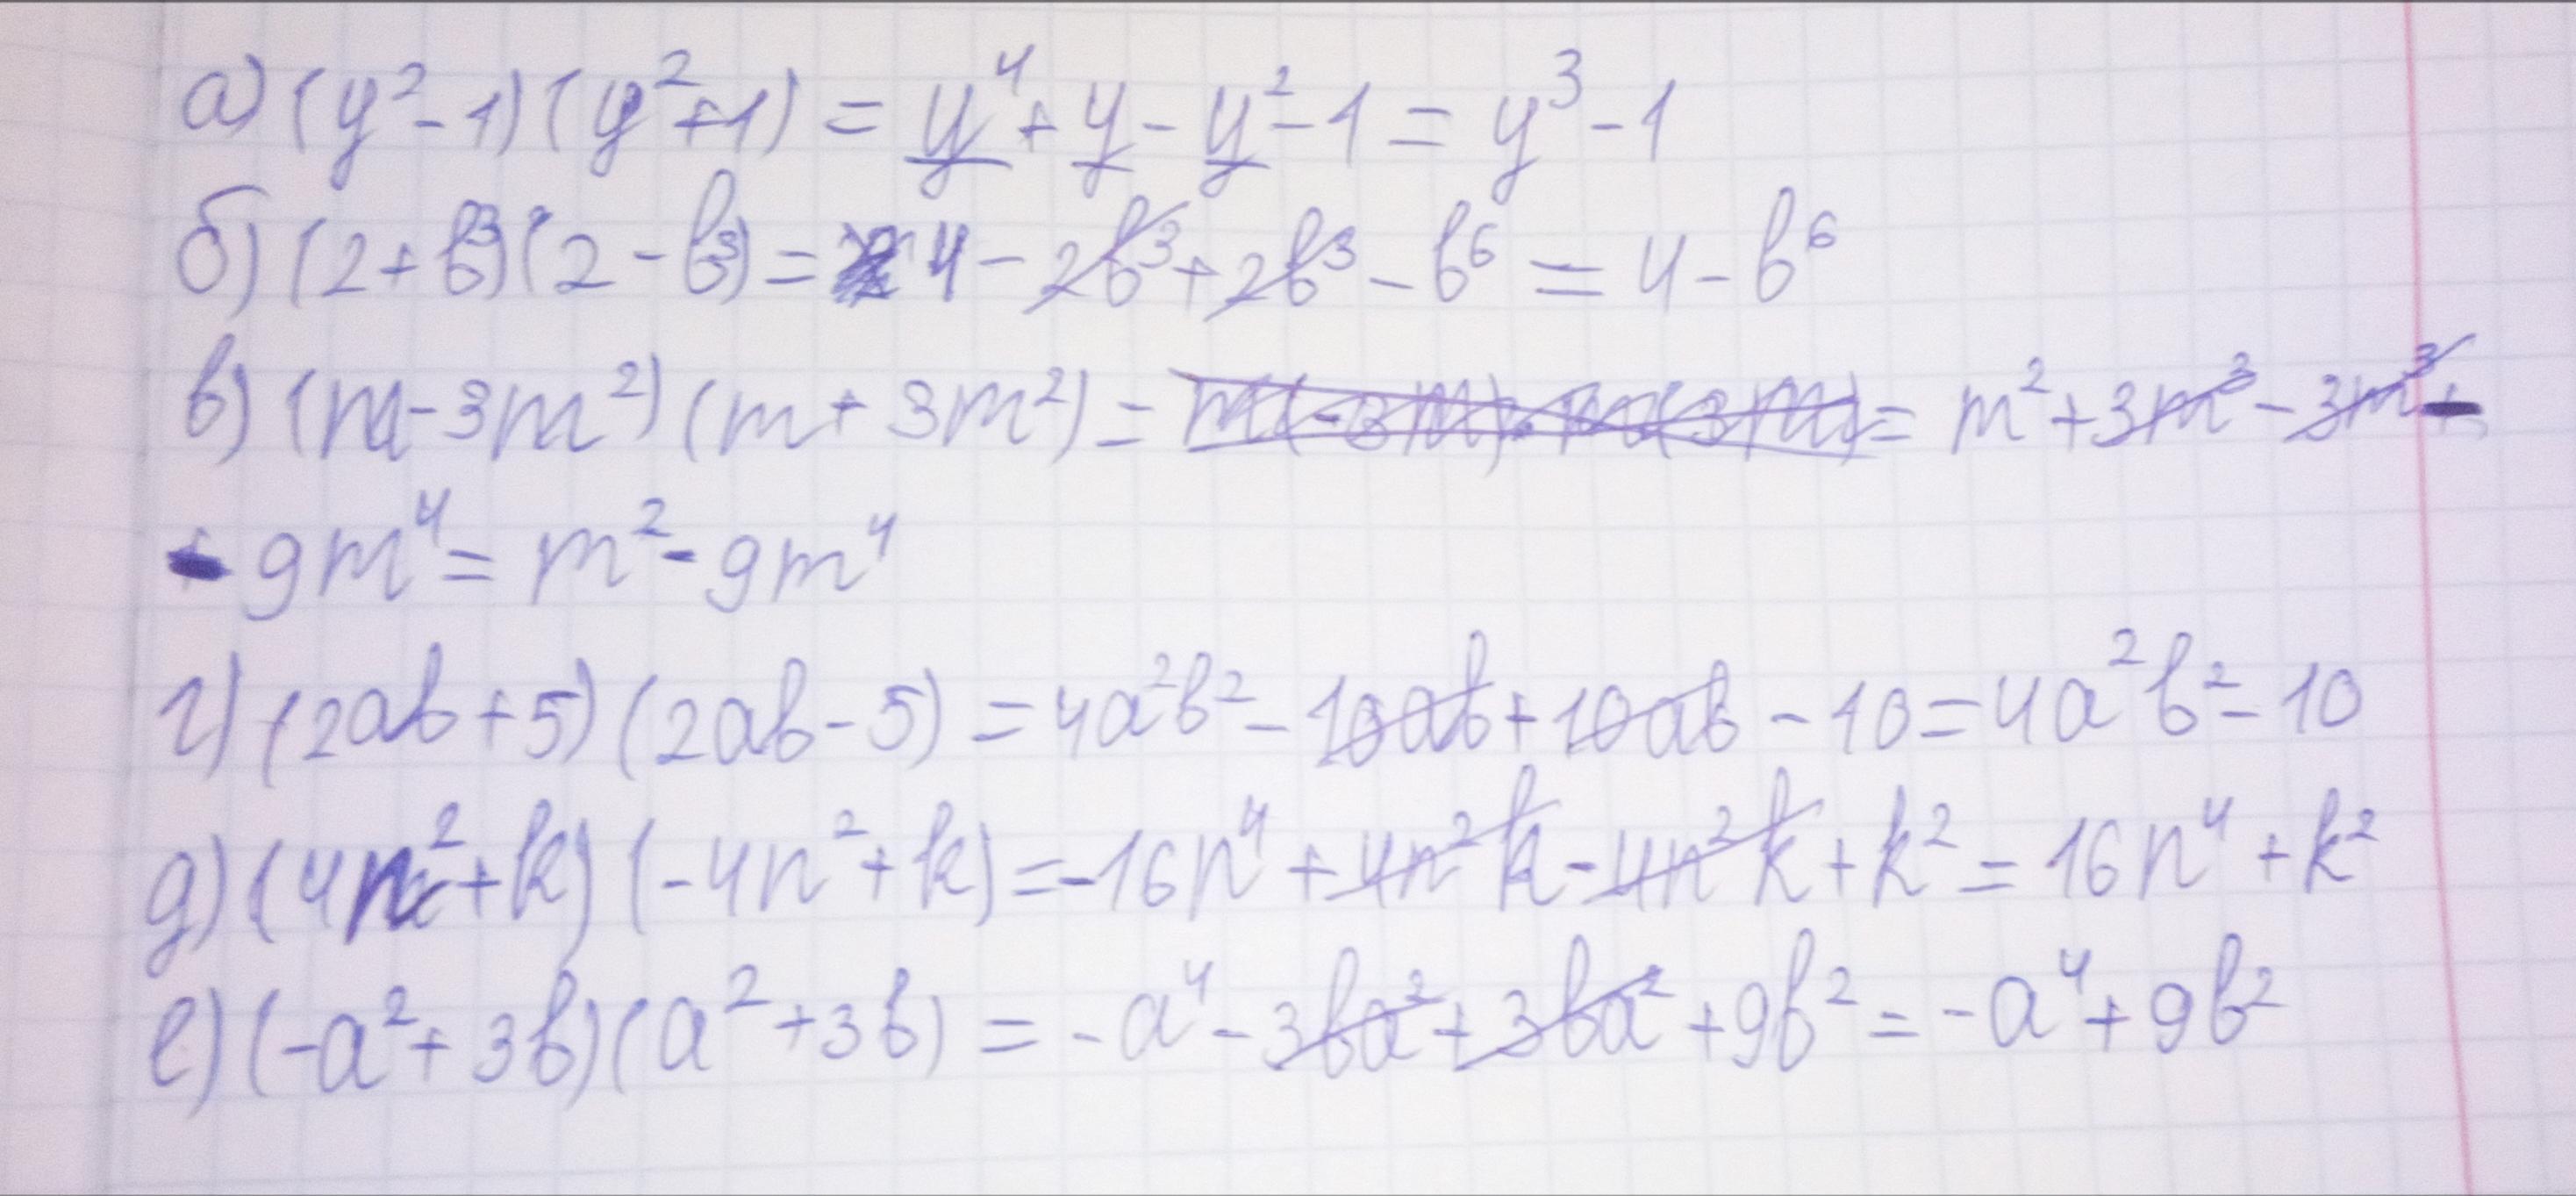 а) (y²-1)(y²+1) = y⁴+y-y²-1 = y³-1
б) (2+b³)(2-b³) = 4-2b³+2b³-b⁶ = 4-b⁶
в) (m-3m²)(m+3m²) = m(-3m)·m(3m) = m²+3m³-3m³-
- 9m⁴ = m²-9m⁴
г) (2ab+5)(2ab-5) = 4a²b²-10ab+10ab-10 = 4a²b²-10
д) (4n²+k)(-4n²+k) = -16n⁴+4n²k-4n²k+k² = 16n⁴+k²
е) (-a²+3b)(a²+3b) = -a⁴-3ba²+3ba²+9b² = -a⁴+9b²